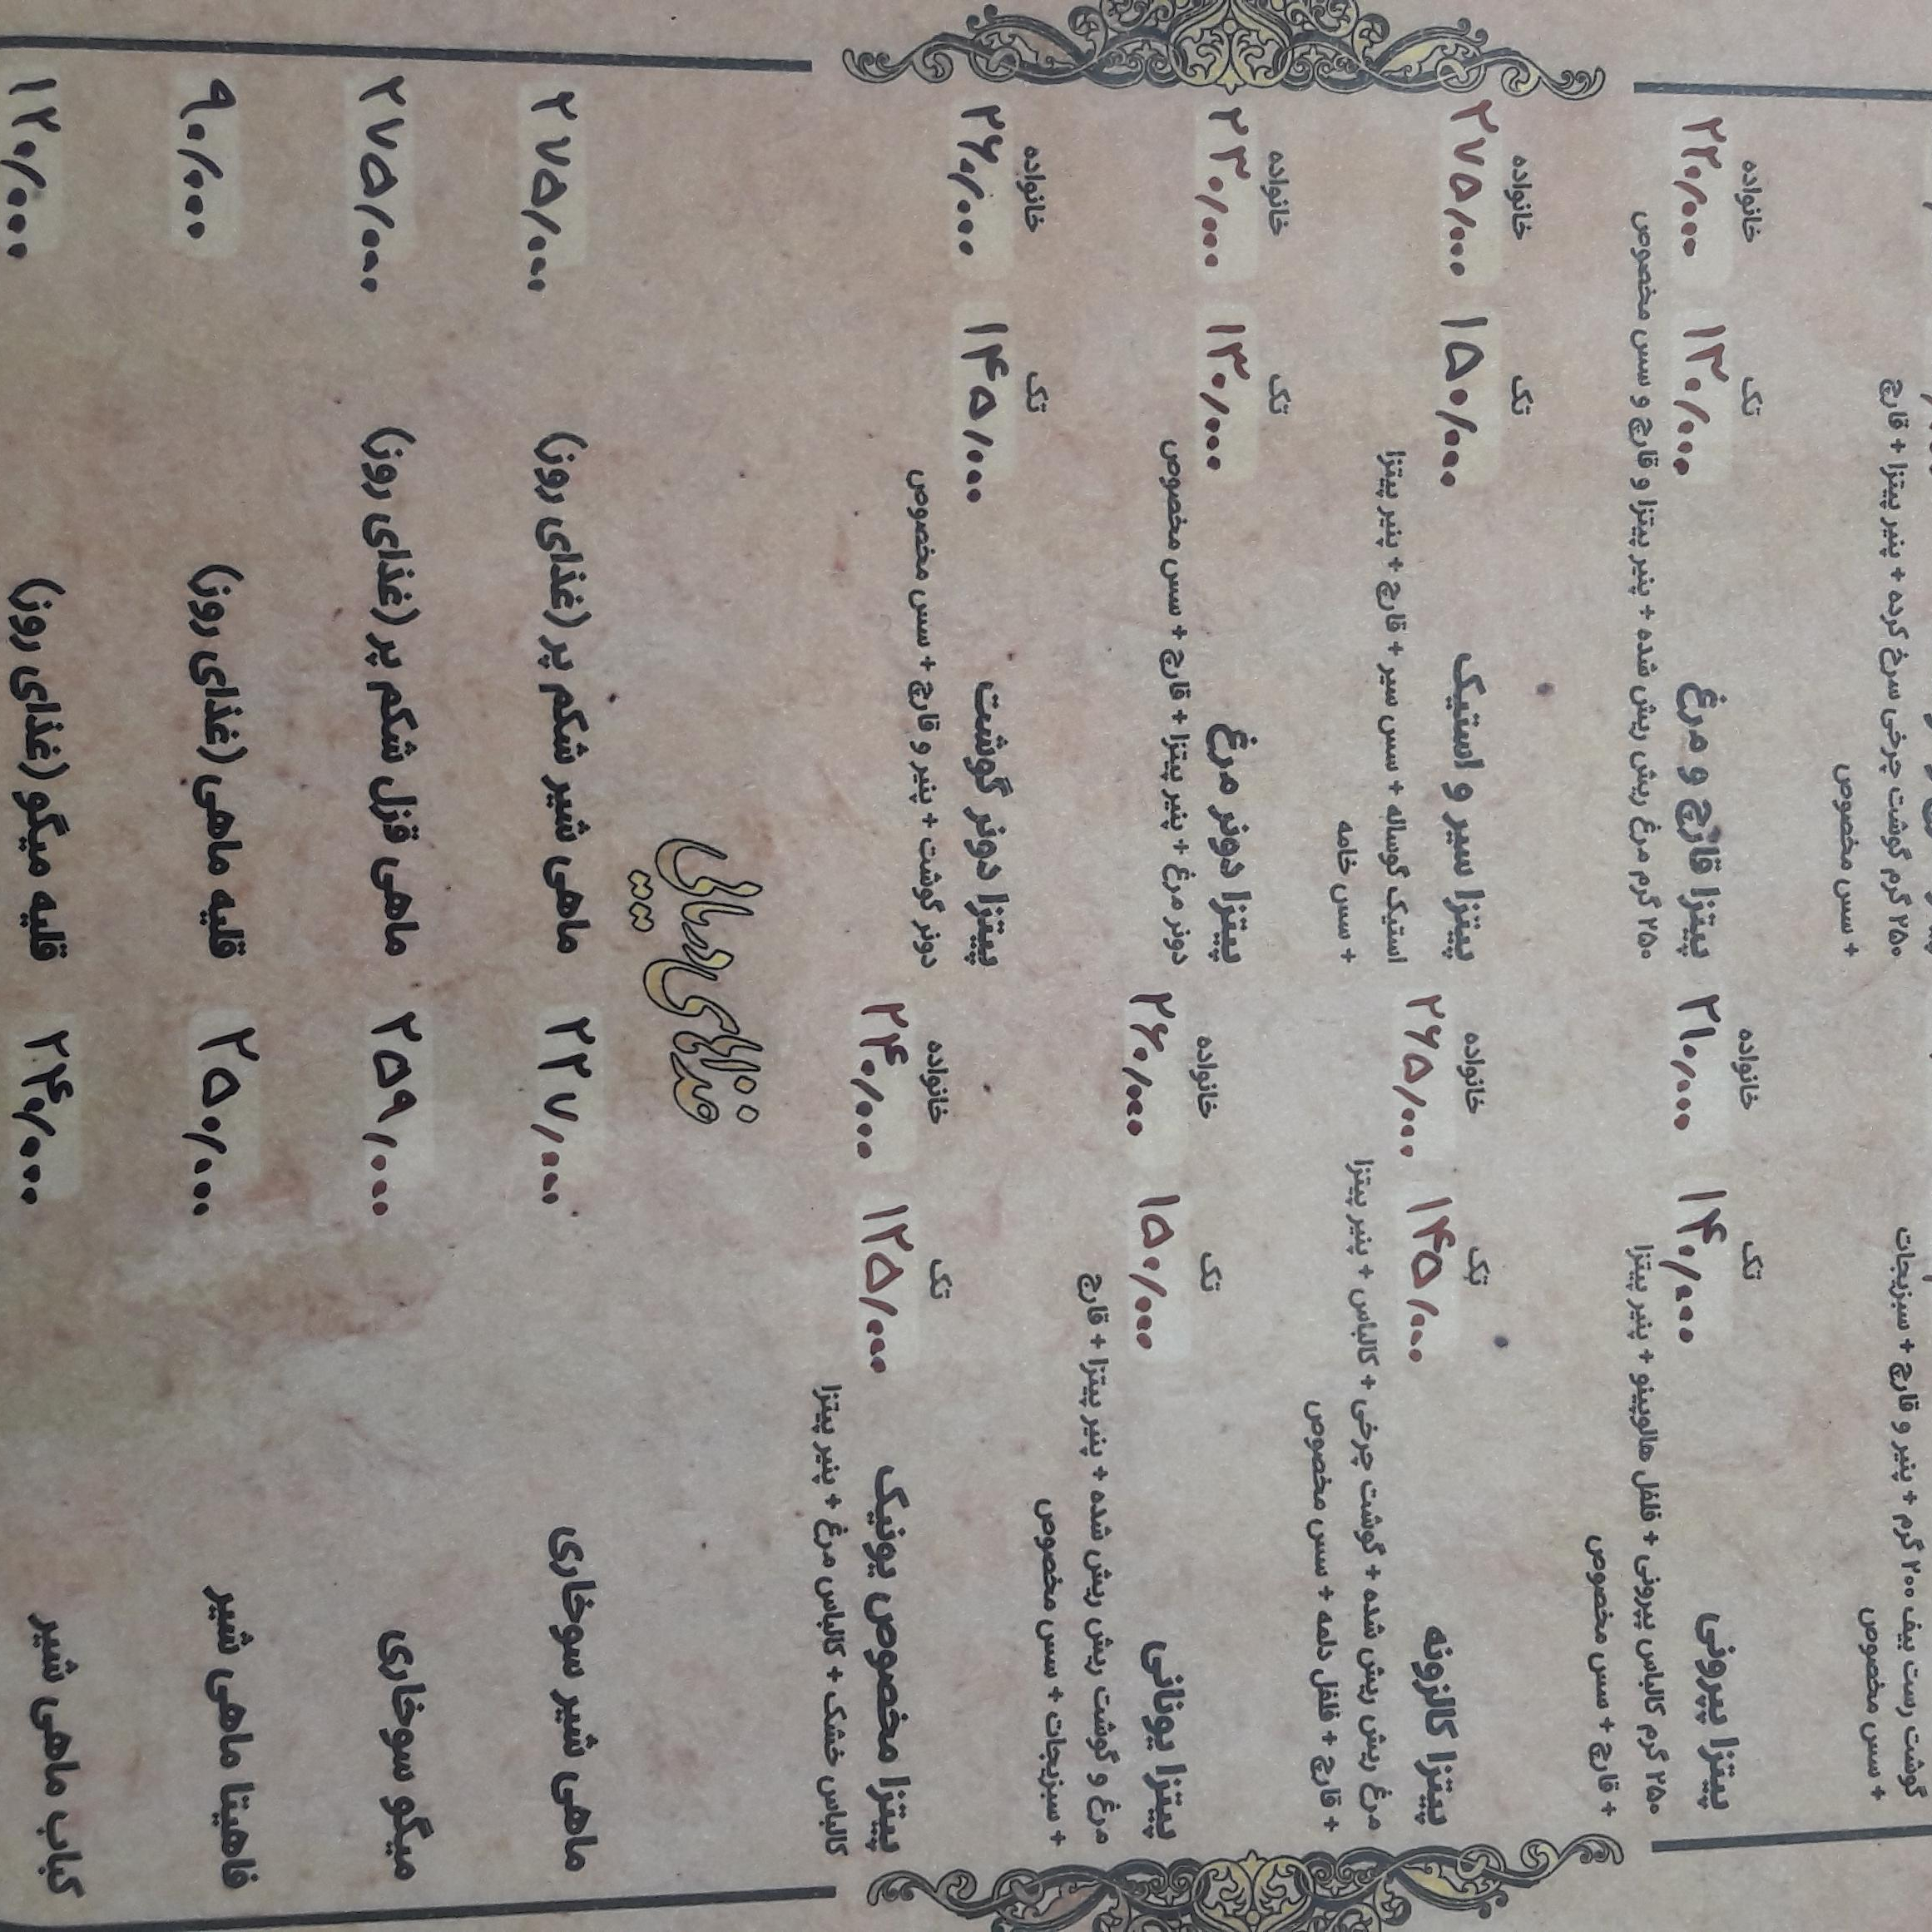 گوشت رست بیف ۲۰۰ گرم + پنیر و قارچ + سبزیجات
+ سس مخصوص
۲۵۰ گرم گوشت چرخی سرخ کرده + پنیر پیتزا + قارچ
+ سس مخصوص
خانواده تک
پیتزا پپرونی ۱۴۰/۰۰۰ ۲۱۰/۰۰۰
۲۵۰ گرم کالباس پپرونی + فلفل هالوپینو + پنیر پیتزا
+ قارچ + سس مخصوص
خانواده تک
پیتزا قارچ و مرغ ۱۳۰/۰۰۰ ۲۲۰/۰۰۰
۲۵۰ گرم مرغ ریش ریش شده + پنیر پیتزا و قارچ و سس مخصوص
خانواده تک
پیتزا کالزونه ۱۴۵/۰۰۰ ۲۶۵/۰۰۰
مرغ ریش ریش شده + گوشت چرخی + کالباس + پنیر پیتزا
+ قارچ + فلفل دلمه + سس مخصوص
خانواده تک
پیتزا سیر و استیک ۱۵۰/۰۰۰ ۲۷۵/۰۰۰
استیک گوساله + سس سیر + قارچ + پنیر پیتزا
+ سس خامه
خانواده تک
پیتزا یونانی ۱۵۰/۰۰۰ ۲۶۰/۰۰۰
مرغ و گوشت ریش ریش شده + پنیر پیتزا + قارچ
+ سبزیجات + سس مخصوص
خانواده تک
پیتزا دونر مرغ ۱۳۰/۰۰۰ ۲۳۰/۰۰۰
دونر مرغ + پنیر پیتزا + قارچ + سس مخصوص
خانواده تک
پیتزا مخصوص یونیک ۱۲۵/۰۰۰ ۲۴۰/۰۰۰
کالباس خشک + کالباس مرغ + پنیر پیتزا
خانواده تک
پیتزا دونر گوشت ۱۴۵/۰۰۰ ۲۶۰/۰۰۰
دونر گوشت + پنیر و قارچ + سس مخصوص
غذای دریایی
ماهی شیر سوخاری ۲۲۷/۰۰۰
ماهی شیر شکم پر (غذای روز) ۲۷۵/۰۰۰
میگو سوخاری ۲۵۹/۰۰۰
ماهی قزل شکم پر (غذای روز) ۲۷۵/۰۰۰
فاهیتا ماهی شیر ۲۵۰/۰۰۰
قلیه ماهی (غذای روز) ۹۰/۰۰۰
کباب ماهی شیر ۲۴۰/۰۰۰
قلیه میگو (غذای روز) ۱۲۰/۰۰۰